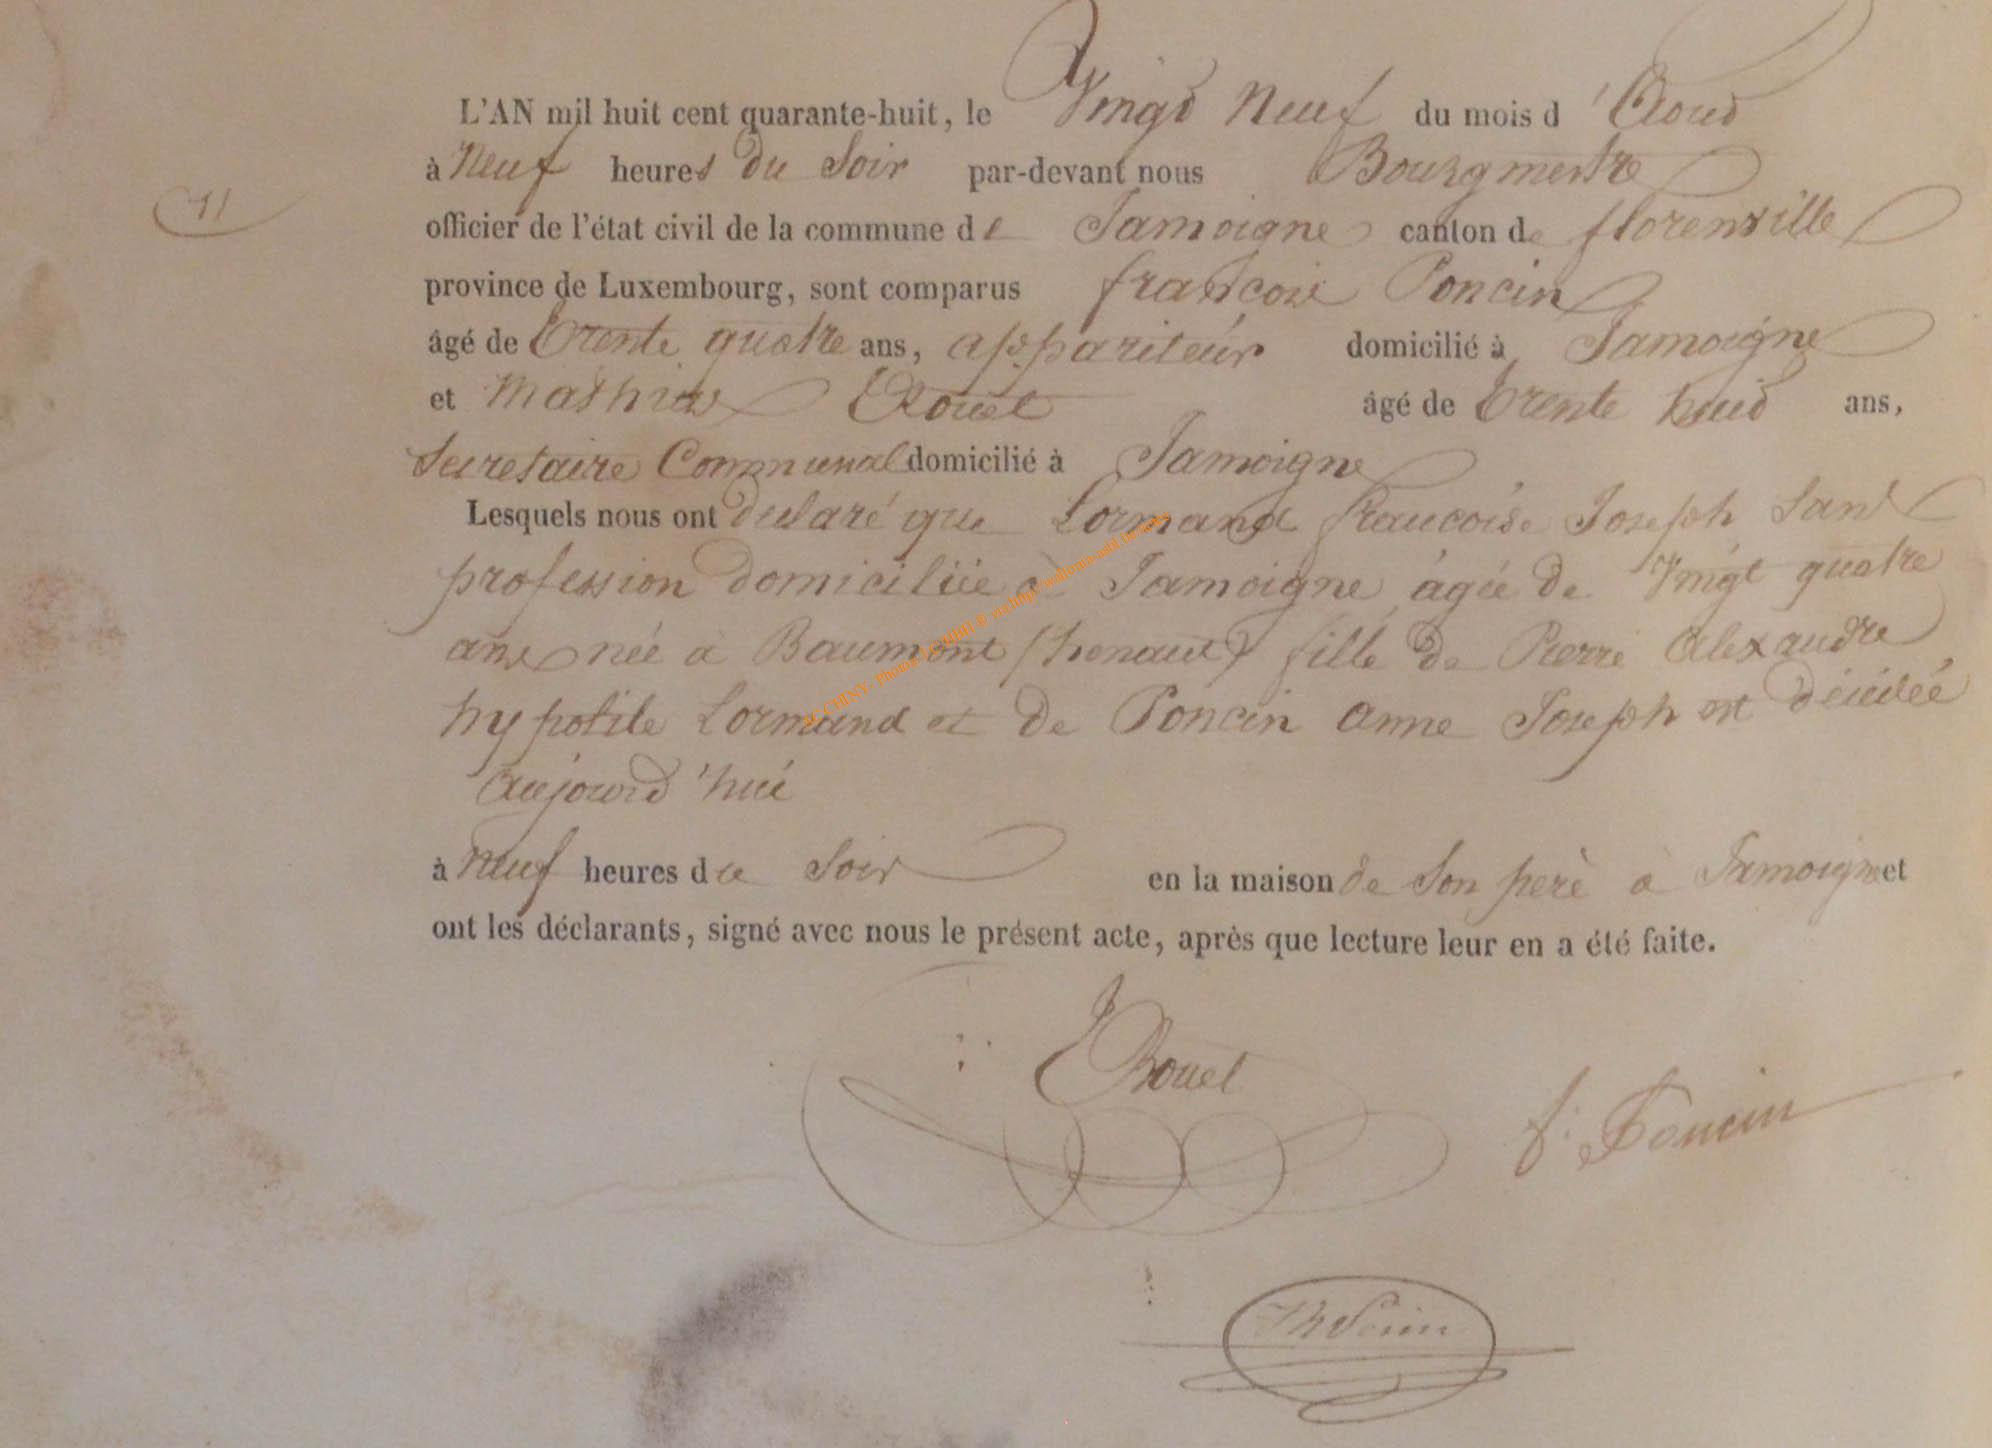 L'AN mil huit cent quarante-huit, le Vingt Neuf du mois d'Aout
à Neuf heures du Soir par-devant nous Bourgmestre
11
officier de l'état civil de la commune de Jamoigne canton de florenville
province de Luxembourg, sont comparus françois Poncin
âgé de Trente quatre ans, appariteur domicilié à Jamoigne
et Mathieu Rouel âgé de Trente huit ans,
Secretaire Communal domicilié à Jamoigne
Lesquels nous ont declaré que Lormand francoise Joseph Sans
profession domiciliée à Jamoigne âgée de Vingt quatre
ans née à Baumont (henaut) fille de Pierre Alexandre
hypolite Lormand et de Poncin Anne Joseph est décédée
Aujourd'hui
à Neuf heures du Soir en la maison de Son père à Jamoigne et
ont les déclarants, signé avec nous le présent acte, après que lecture leur en a été faite.
Rouel
f: Poncin
AC CHINY- Photos